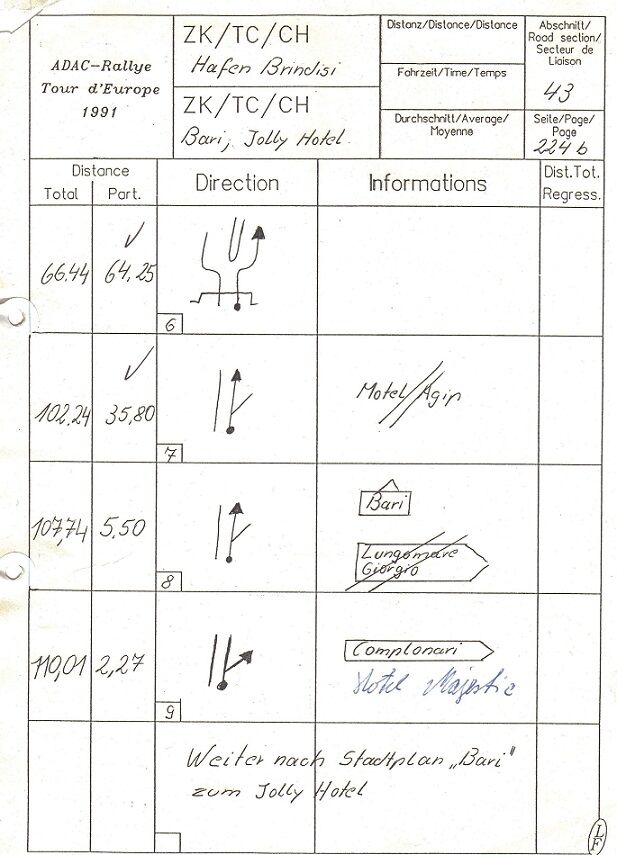 ADAC-Rallye
Tour d'Europe
1991
ZK/TC/CH
Hafen Brindisi
ZK/TC/CH
Bari, Jolly Hotel
Distanz/Distance/Distance
Fahrzeit/Time/Temps
Durchschnitt/Average/
Moyenne
Abschnitt/
Road section/
Secteur de
Liaison
43
Seite/Page/
Page
224 b
Distance
Total Part.
Direction
Informations
Dist.Tot.
Regress.
66.44 64,25
6
102.24 35,80
7
Motel Agip
107,74 5,50
8
Bari
Lungomare
Giorgio
110,01 2,27
9
Complonari
Hotel Majestic
Weiter nach Stadtplan „Bari"
zum Jolly Hotel
LF